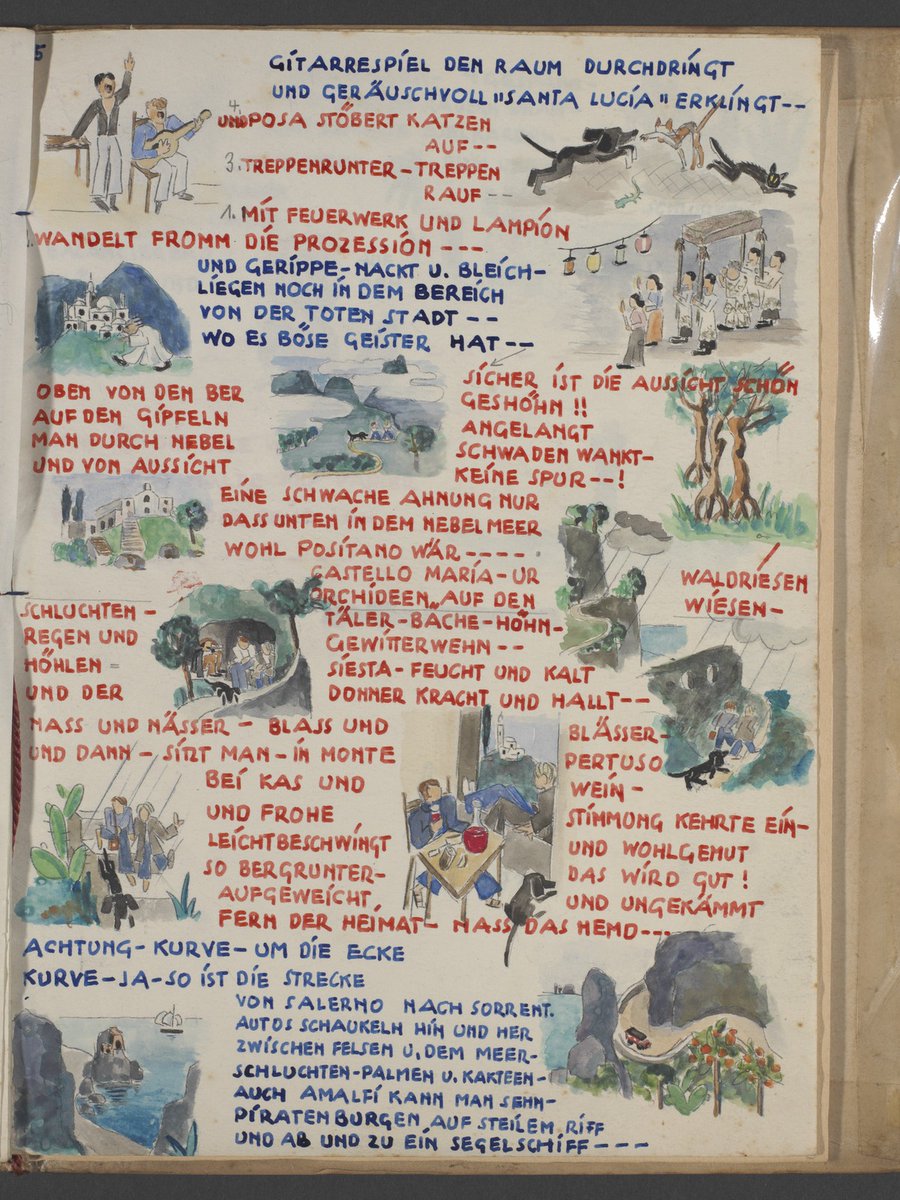 5
GITARRESPIEL DEN RAUM DURCHDRINGT
UND GERÄUSCHVOLL "SANTA LUCIA" ERKLINGT--
4. UND POSA STÖBERT KATZEN
AUF--
3. TREPPENRUNTER-TREPPEN
RAUF--
1. MIT FEUERWERK UND LAMPION
WANDELT FROMM DIE PROZESSION---
UND GERIPPE-NACKT U. BLEICH-
LIEGEN NOCH IN DEM BEREICH
VON DER TOTEN STADT--
WO ES BÖSE GEISTER HAT--
OBEN VON DEN BER
AUF DEN GIPFELN
MAN DURCH NEBEL
UND VON AUSSICHT
SICHER IST DIE AUSSICHT SCHÖN
GESHÖHN!!
ANGELANGT
SCHWADEN WANKT-
KEINE SPUR--!
EINE SCHWACHE AHNUNG NUR
DASS UNTEN IN DEM NEBELMEER
WOHL POSITANO WÄR----
CASTELLO MARIA-UR
WALDRIESEN
ORCHIDEEN AUF DEN
WIESEN-
SCHLUCHTEN-
TÄLER-BÄCHE-HÖHN-
REGEN UND
GEWITTERWEHN--
HÖHLEN=
SIESTA-FEUCHT UND KALT
UND DER
DONNER KRACHT UND HALLT--
NASS UND NÄSSER-BLASS UND
BLÄSSER-
UND DANN-SITZT MAN-IN MONTE
PERTUSO
BEI KAS UND
WEIN-
UND FROHE
STIMMUNG KEHRTE EIN-
LEICHTBESCHWINGT
UND WOHLGEMUT
SO BERGRUNTER-
DAS WIRD GUT!
AUFGEWEICHT,
UND UNGEKÄMMT
FERN DER HEIMAT-NASS DAS HEMD---
ACHTUNG-KURVE-UM DIE ECKE
KURVE-JA-SO IST DIE STRECKE
VON SALERNO NACH SORRENT.
AUTOS SCHAUKELN HIN UND HER
ZWISCHEN FELSEN U. DEM MEER-
SCHLUCHTEN-PALMEN U. KAKTEEN-
AUCH AMALFI KANN MAN SEHN-
PIRATENBURGEN AUF STEILEM RIFF
UND AB UND ZU EIN SEGELSCHIFF---